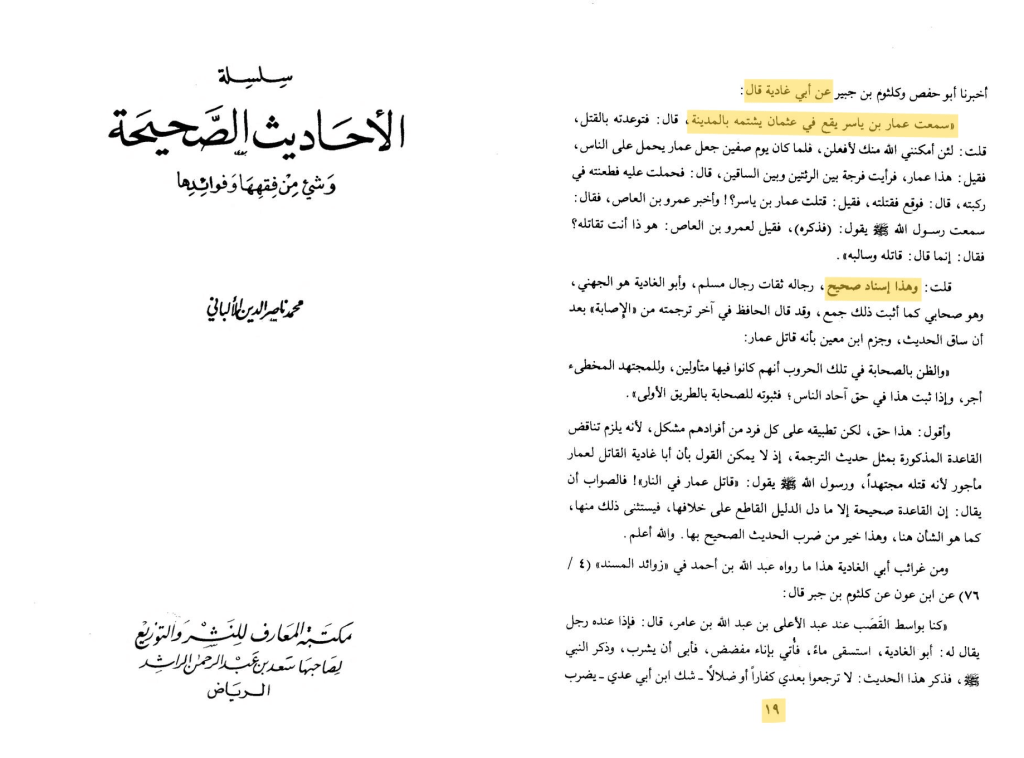 سلسلة
الأحاديث الصَّحيحَة
وَشَيْءٌ مِنْ فِقْهِهَا وَفَوَائِدِهَا
محمد ناصر الدين الألباني
مكتبة المعارف للنشر والتوزيع
لصاحبها سَعد بن عَبد الرحمن الراشد
الرياض
أخبرنا أبو حفص وكلثوم بن جبير عن أبي غادية قال:
«سمعت عمار بن ياسر يقع في عثمان يشتمه بالمدينة، قال: فتوعدته بالقتل،
قلت: لئن أمكنني الله منك لأفعلن، فلما كان يوم صفين جعل عمار يحمل على الناس،
فقيل: هذا عمار، فرأيت فرجة بين الرئتين وبين الساقين، قال: فحملت عليه فطعنته في
ركبته، قال: فوقع فقتلته، فقيل: قتلت عمار بن ياسر؟! وأخبر عمرو بن العاص، فقال:
سمعت رسول الله ﷺ يقول: (فذكره)، فقيل لعمرو بن العاص: هو ذا أنت تقاتله؟
فقال: إنما قال: قاتله وسالبه».
قلت: وهذا إسناد صحيح، رجاله ثقات رجال مسلم، وأبو الغادية هو الجهني،
وهو صحابي كما أثبت ذلك جمع، وقد قال الحافظ في آخر ترجمته من «الإصابة» بعد
أن ساق الحديث، وجزم ابن معين بأنه قاتل عمار:
«والظن بالصحابة في تلك الحروب أنهم كانوا فيها متأولين، وللمجتهد المخطىء
أجر، وإذا ثبت هذا في حق آحاد الناس؛ فثبوته للصحابة بالطريق الأولى».
وأقول: هذا حق، لكن تطبيقه على كل فرد من أفرادهم مشكل، لأنه يلزم تناقض
القاعدة المذكورة بمثل حديث الترجمة، إذ لا يمكن القول بأن أبا غادية القاتل لعمار
مأجور لأنه قتله مجتهداً، ورسول الله ﷺ يقول: «قاتل عمار في النار»! فالصواب أن
يقال: إن القاعدة صحيحة إلا ما دل الدليل القاطع على خلافها، فيستثنى ذلك منها،
كما هو الشأن هنا، وهذا خير من ضرب الحديث الصحيح بها. والله أعلم.
ومن غرائب أبي الغادية هذا ما رواه عبد الله بن أحمد في «زوائد المسند» (٤ /
٧٦) عن ابن عون عن كلثوم بن جبر قال:
«كنا بواسط القَصَب عند عبد الأعلى بن عبد الله بن عامر، قال: فإذا عنده رجل
يقال له: أبو الغادية، استسقى ماءً، فأُتي بإناء مفضض، فأبى أن يشرب، وذكر النبي
ﷺ، فذكر هذا الحديث: لا ترجعوا بعدي كفاراً أو ضلالاً ـ شك ابن أبي عدي ـ يضرب
١٩